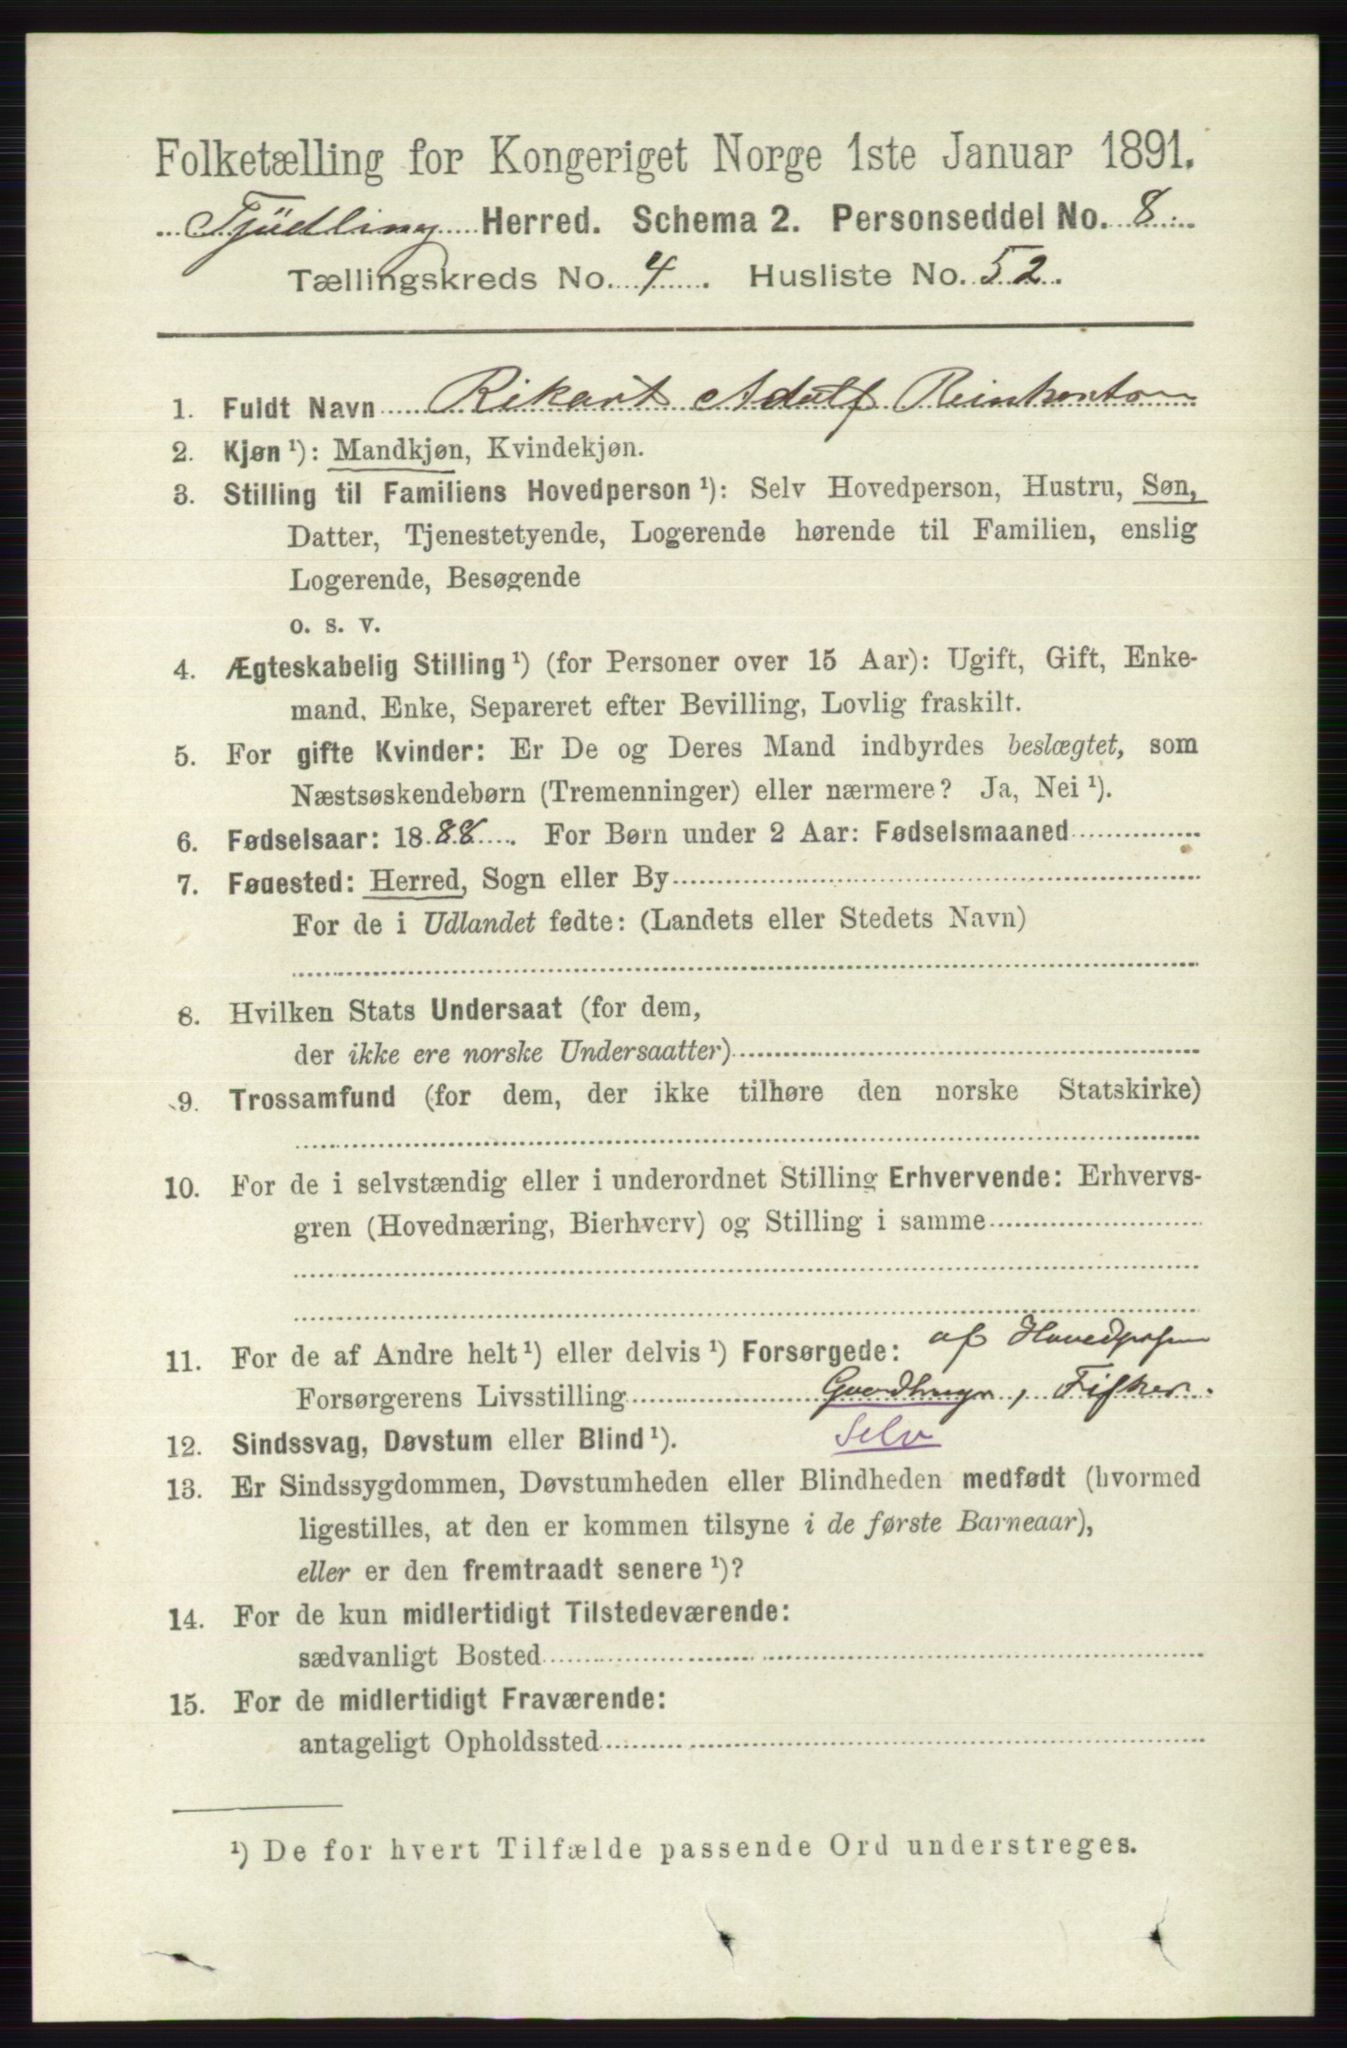 Folketælling for Kongeriget Norge 1ste Januar 1891.
Tjødling Herred. Schema 2. Personseddel No. 8.
Tællingskreds No. 4. Husliste No. 52.
1. Fuldt Navn Rikart Adolf
2. Kjøn ¹): Mandkjøn, Kvindekjøn.
3. Stilling til Familiens Hovedperson ¹): Selv Hovedperson, Hustru, Søn,
Datter, Tjenestetyende, Logerende hørende til Familien, enslig
Logerende, Besøgende
o. s. v.
4. Ægteskabelig Stilling ¹) (for Personer over 15 Aar): Ugift, Gift, Enke-
mand, Enke, Separeret efter Bevilling, Lovlig fraskilt.
5. For gifte Kvinder: Er De og Deres Mand indbyrdes beslægtet, som
Næstsøskendebørn (Tremenninger) eller nærmere? Ja, Nei ¹).
6. Fødselsaar: 1888. For Børn under 2 Aar: Fødselsmaaned
7. Fødested: Herred, Sogn eller By
For de i Udlandet fødte: (Landets eller Stedets Navn)
8. Hvilken Stats Undersaat (for dem,
der ikke ere norske Undersaatter)
9. Trossamfund (for dem, der ikke tilhøre den norske Statskirke)
10. For de i selvstændig eller i underordnet Stilling Erhvervende: Erhvervs-
gren (Hovednæring, Bierhverv) og Stilling i samme
11. For de af Andre helt ¹) eller delvis ¹) Forsørgede: af Hovedpersn
Forsørgerens Livsstilling Gaardbruger, Fisker.
12. Sindssvag, Døvstum eller Blind ¹). Selv
13. Er Sindssygdommen, Døvstumheden eller Blindheden medfødt (hvormed
ligestilles, at den er kommen tilsyne i de første Barneaar),
eller er den fremtraadt senere ¹)?
14. For de kun midlertidigt Tilstedeværende:
sædvanligt Bosted
15. For de midlertidigt Fraværende:
antageligt Opholdssted
¹) De for hvert Tilfælde passende Ord understreges.